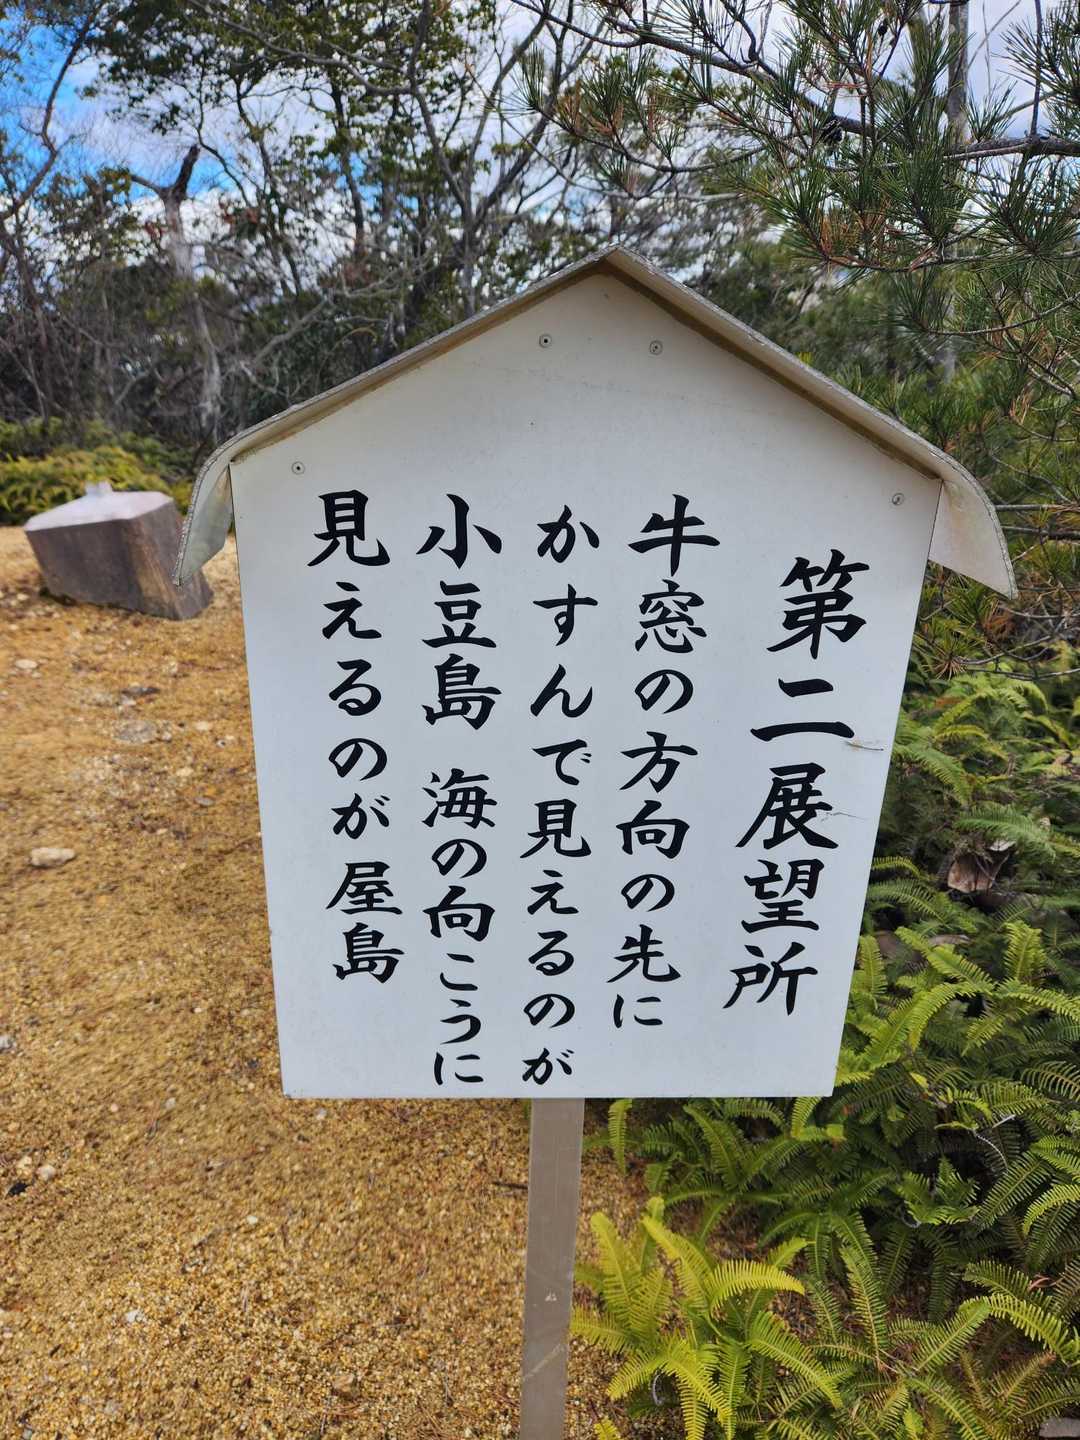 第二展望所
牛窓の方向の先に
かすんで見えるのが
小豆島 海の向こうに
見えるのが屋島